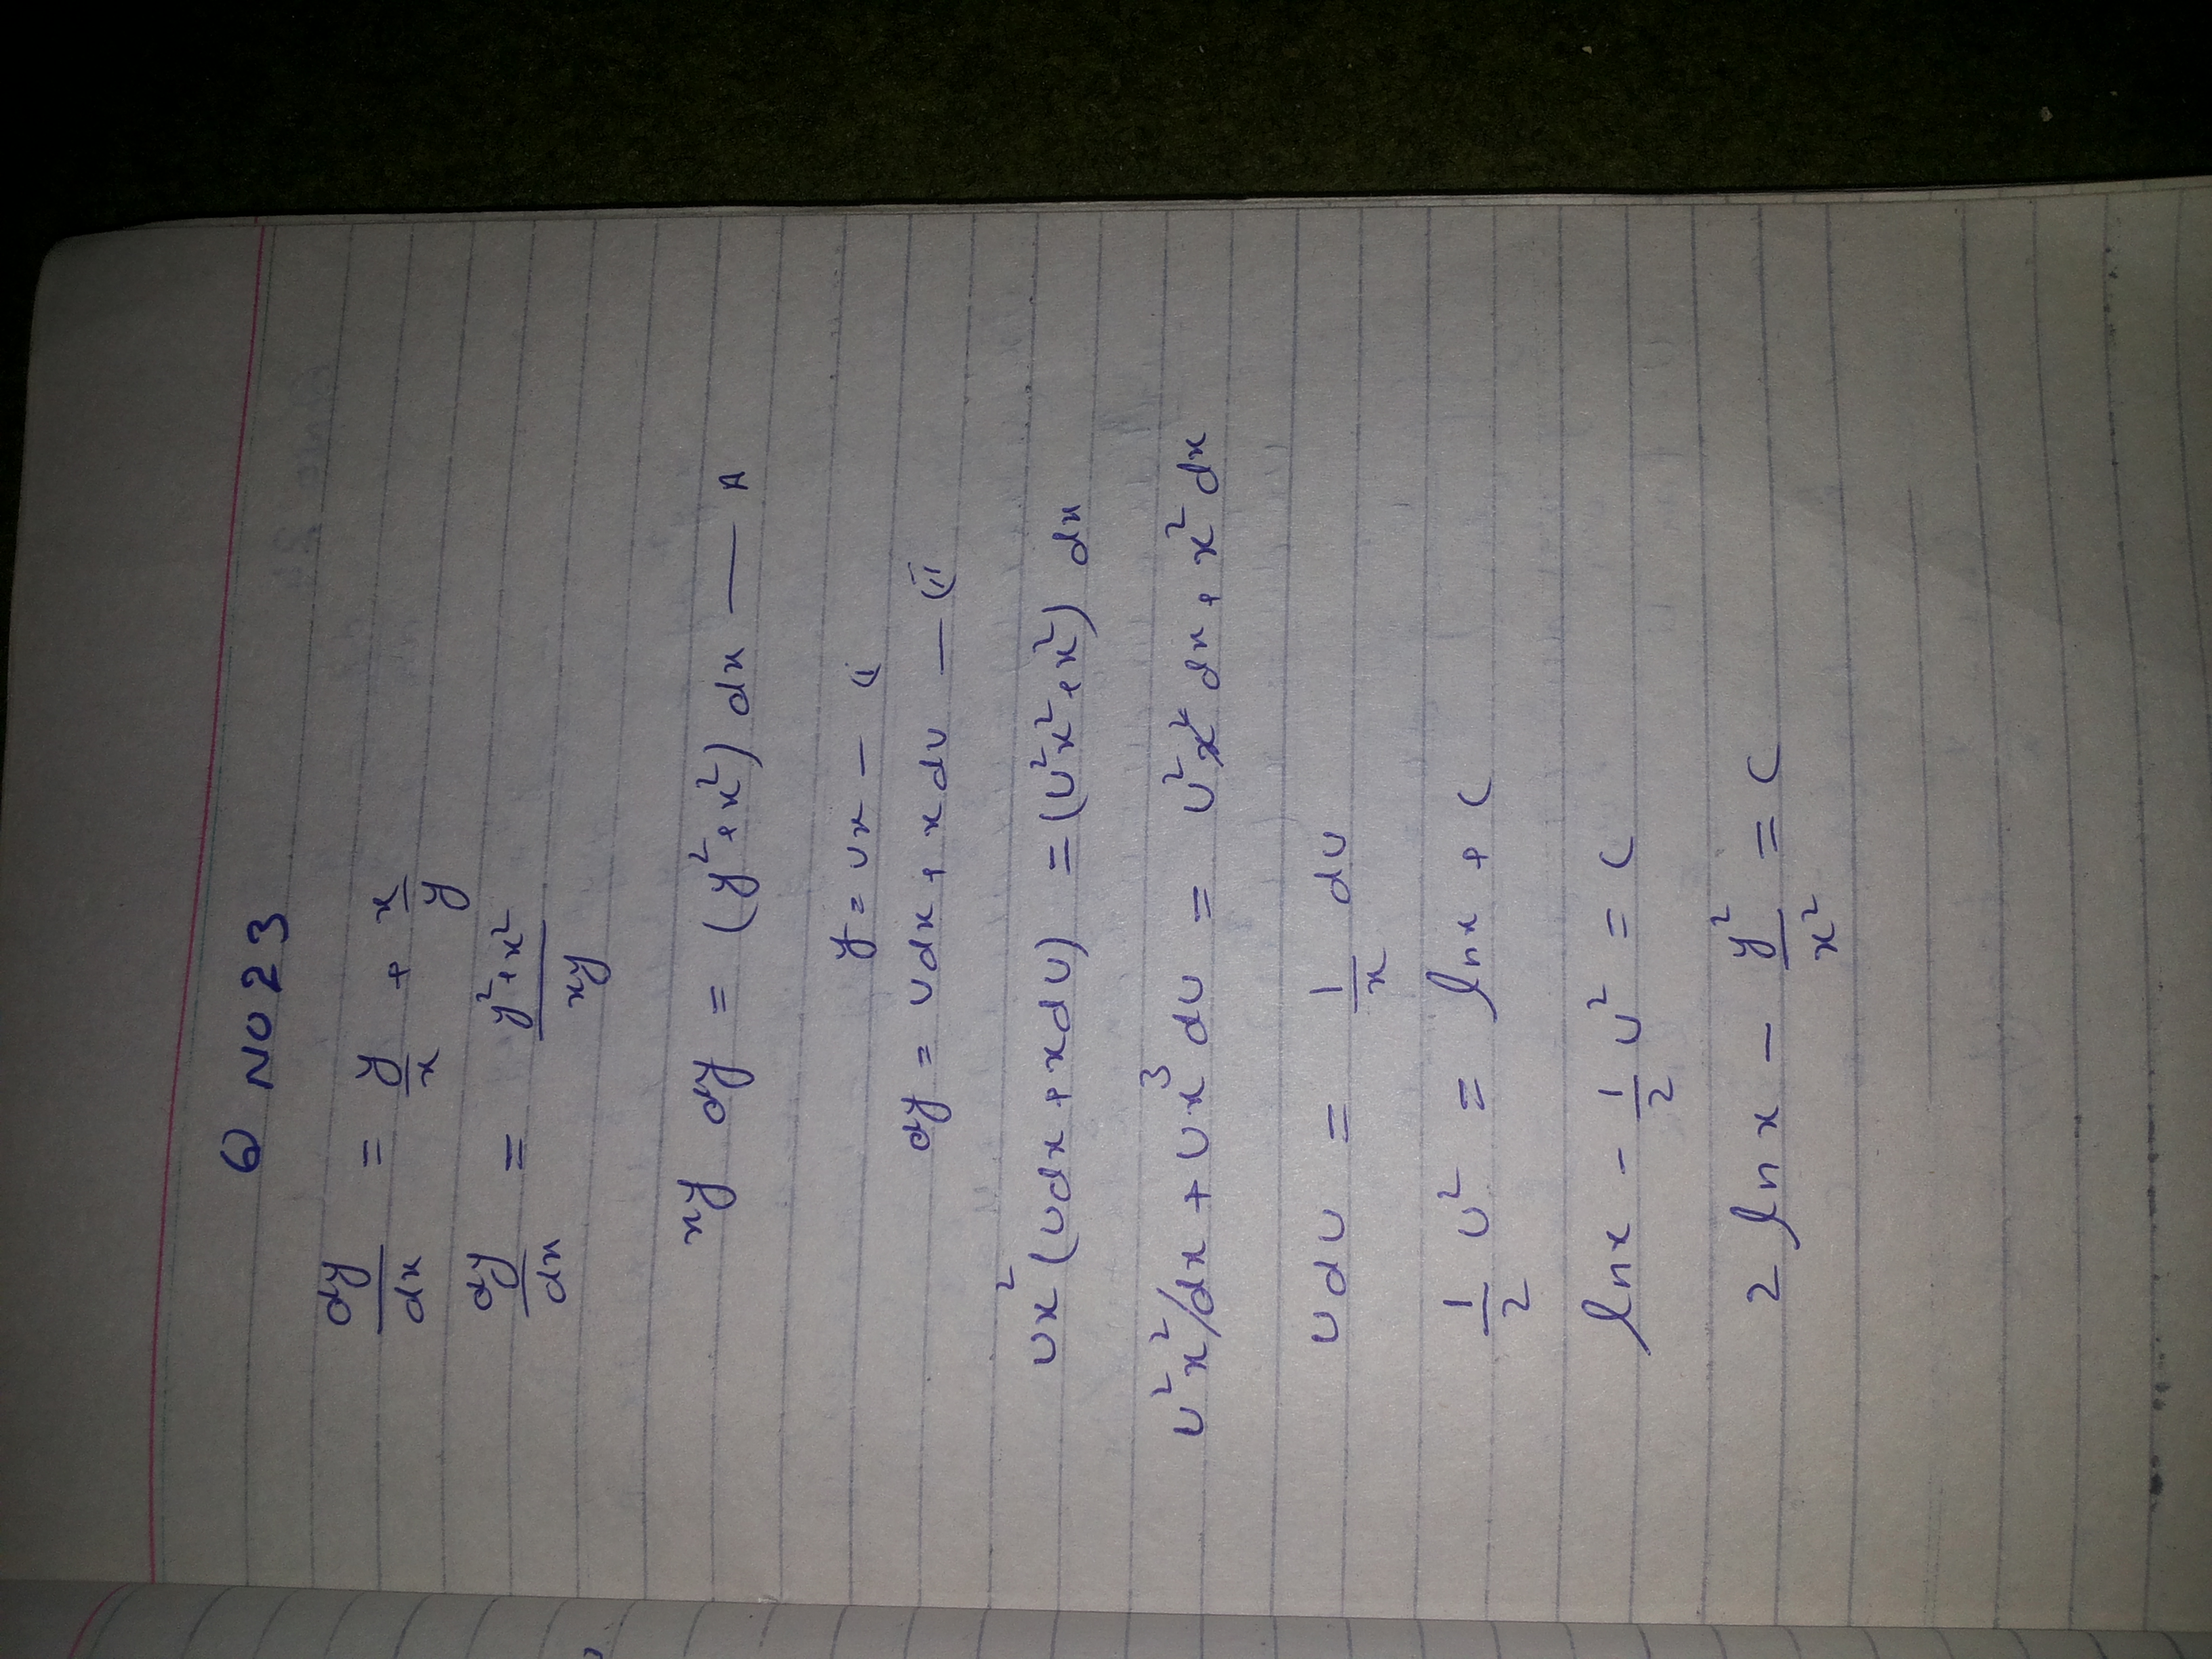 Q NO 23
dy/dx = y/x + x/y
dy/dx = y²+x²/xy
xy dy = (y²+x²) dx — A
y = ux — (i
dy = udx + x du — (ii
ux² (udx + xdu) = (u²x²+x²) dx
u²x²/dx + ux³ du = u²x² dx + x² dx
u du = 1/x du
1/2 u² = lnx + c
lnx - 1/2 u² = c
2 lnx - y²/x² = c